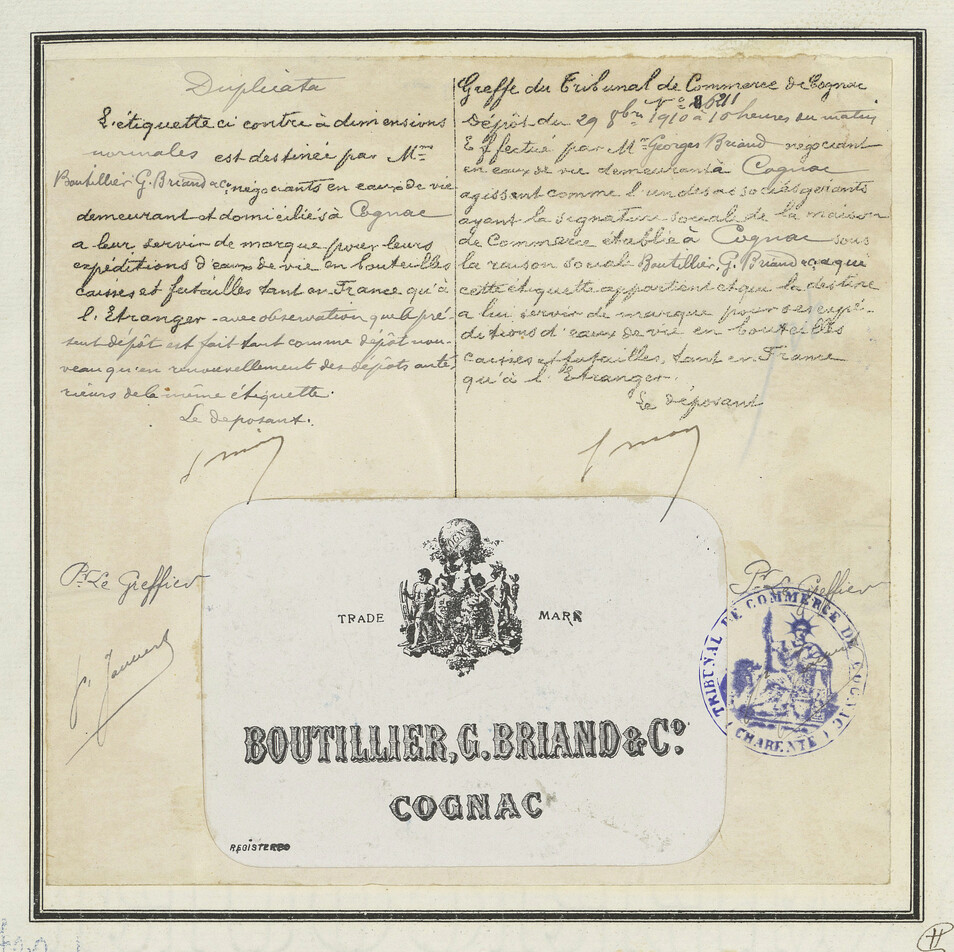 Duplicata
L'étiquette ci contre à dimensions
normales est destinée par Mrs
Boutillier G. Briand & Co négociants en eaux de vie
demeurant et domiciliés à Cognac
a leur servir de marque pour leurs
expéditions d'eaux de vie en bouteilles
caisses et futailles tant en France qu'à
l'Etranger - avec observation que le pré-
sent dépôt est fait tant comme dépôt nou-
veau qu'en renouvellement des dépôts anté-
rieurs de la même étiquette.
Le deposant.
Pr. Le Greffier
Greffe du Tribunal de Commerce de Cognac
No
Dépôt du 29 8bre 1910 à 10 heures du matin
Effectué par Mr Georges Briand negociant
en eaux de vie demeurant à Cognac
agissent comme l'un des associés gerants
ayant la signature social de la maison
de Commerce établie à Cognac sous
la raison social Boutillier, G. Briand & Co a qui
cette étiquette appartient et qui la destine
a lui servir de marque pour ses expé-
ditions d'eaux de vie en bouteilles
caisses et futailles, tant en France
qu'à l'Etranger.
Le déposant
Pr. Le Greffier
TRIBUNAL DE COMMERCE DE COGNAC
(CHARENTE)
COGNAC
TRADE MARK
BOUTILLIER, G. BRIAND & Co.
COGNAC
REGISTERED
H